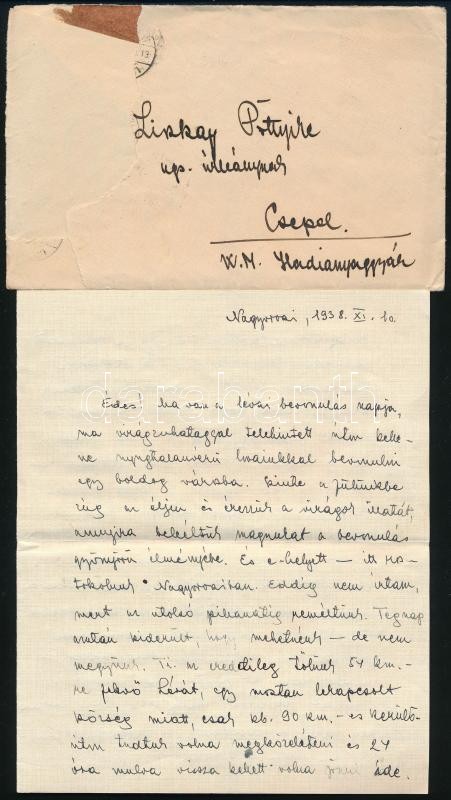 Liszkay Pöttyike
ngs. úrleánynak
Csepel.
W. M. Hadianyaggyár
Nagyorosi, 1938. XI. 10.
Édes! ma van a lévai bevonulás napja,
ma virágzuhataggal telehintett úton kelle-
ne nyugtalanvérű lovainkkal bevonulni
egy boldog városba. Szinte a fülünkbe
cseng az éljen és érezzük a virágok illatát,
annyira beleéltük magunkat a bevonulás
gyönyörű élményébe. És e-helyett — itt ro-
stokolunk Nagyorosiban. Eddig nem írtam,
mert az utolsó pillanatig reméltünk. Tegnap
azután kiderült, hogy mehetnénk — de nem
megyünk. Ti. az eredetileg tőlünk 54 km.-
re fekvő Lévát, egy mostan lekapcsolt
község miatt, csak kb. 90 km.-es kerülő-
úton tudtuk volna megközelíteni és 24
óra mulva vissza kellett volna jönni ide.